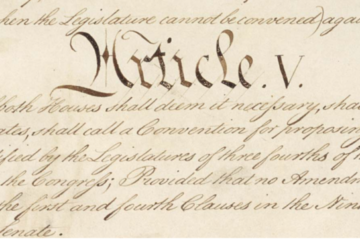 hen the Legislature cannot be convened) aga
Article. V.
both Houses shall deem it necessary, sha
ates, shall call a Convention for proposin
ified by the Legislatures of three fourths of
the Congress; Provided that no Amendm
the first and fourth Clauses in the Nin
Senate.